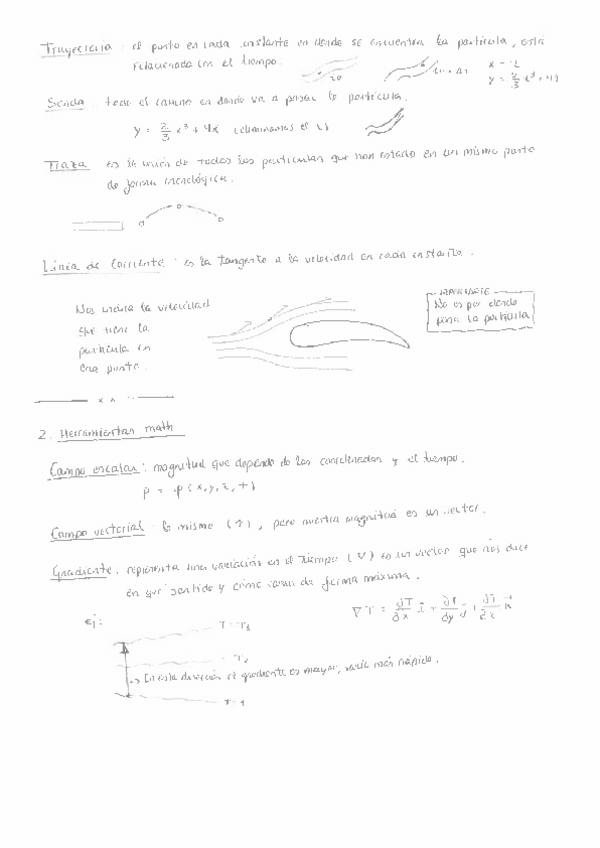 Trayectoria : el punto en cada instante en donde se encuentra la partícula, está
relacionada con el tiempo.
Senda : todo el camino en donde va a pasar la partícula.
y = 2/3 x³ + 4x (eliminamos el t)
Traza es la unión de todas las partículas que han estado en un mismo punto
de forma cronológica.
Línea de corriente : es la tangente a la velocidad en cada instante.
Nos indica la velocidad
que tiene la
partícula en
ese punto.
IMPORTANTE
No es por donde
pasa la partícula
2. Herramientas math
Campo escalar : magnitud que depende de las coordenadas y el tiempo.
p = p(x, y, z, t)
Campo vectorial : lo mismo (↑), pero nuestra magnitud es un vector.
Gradiente : representa una variación en el tiempo (∇) es un vector que nos dice
en qué sentido y cómo varía de forma máxima.
ej:
∇T = ∂T/∂x i + ∂T/∂y j + ∂T/∂z k
T = T₃
T₂
→ En esta dirección el gradiente es mayor, varía más rápido.